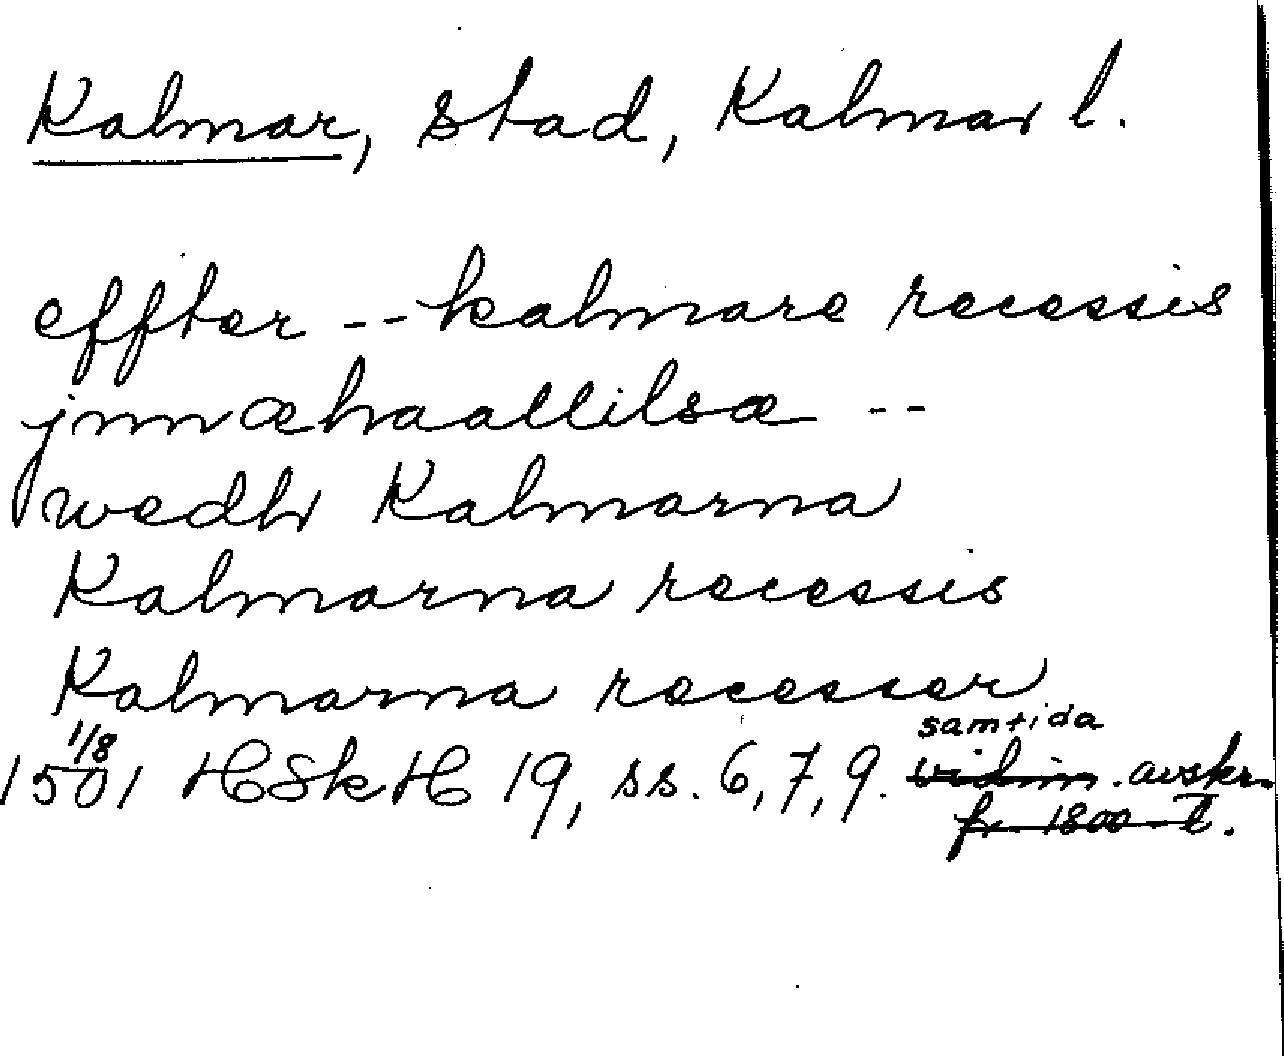 Kalmar, stad, Kalmar l.
effter -- kalmare recessis
jnnæhaallilsæ --
wedh Kalmarna
Kalmarna recessis
Kalmarna recesser
samtida
1501 1/8 HSkH 19, ss. 6, 7, 9. vidim. avskr.
fr. 1800-t.